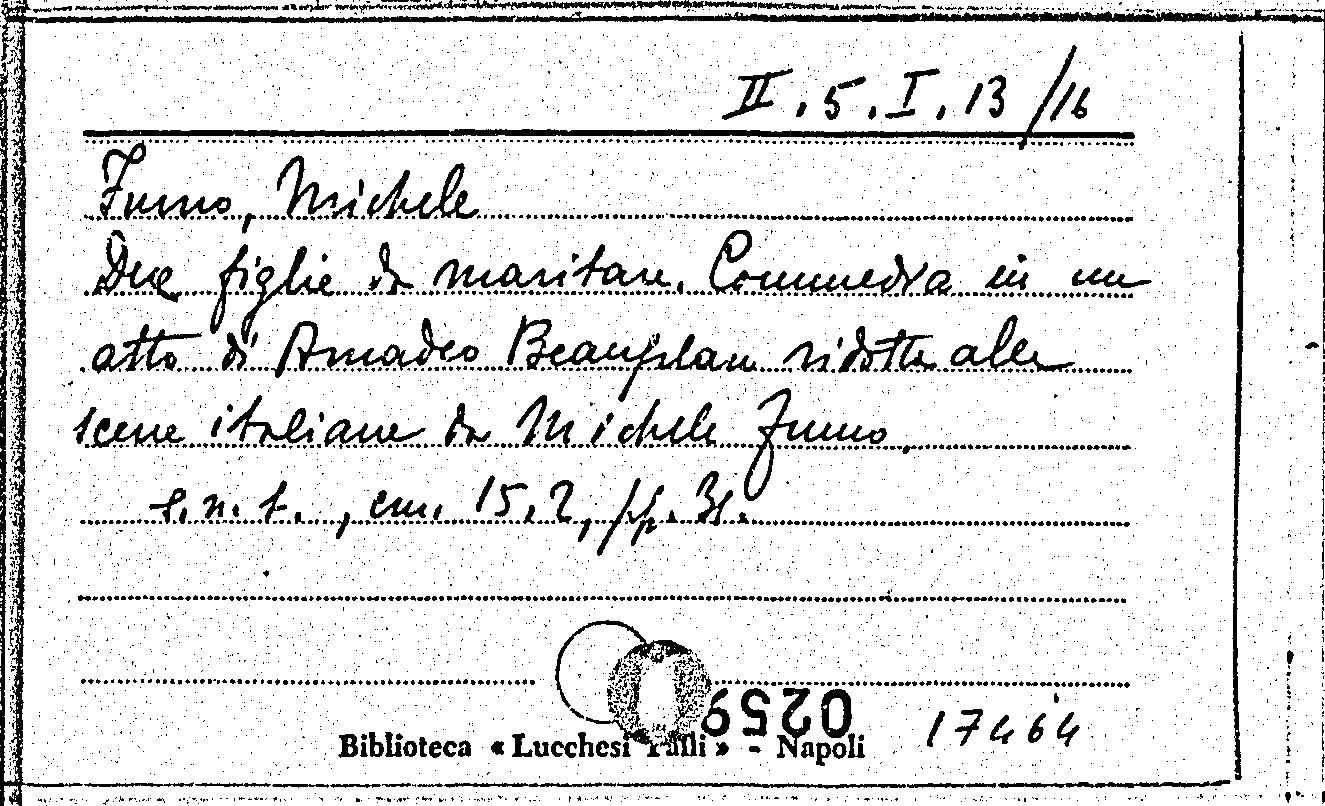 II.5.I.13/16
Fumo, Michele
Due figlie da maritare. Commedia in un
atto di Amadeo Beauplan ridotta alle
scene italiane da Michele Fumo.
s.n.t., cm. 15,2, pp. 31.
0259
17464
Biblioteca « Lucchesi Palli » - Napoli